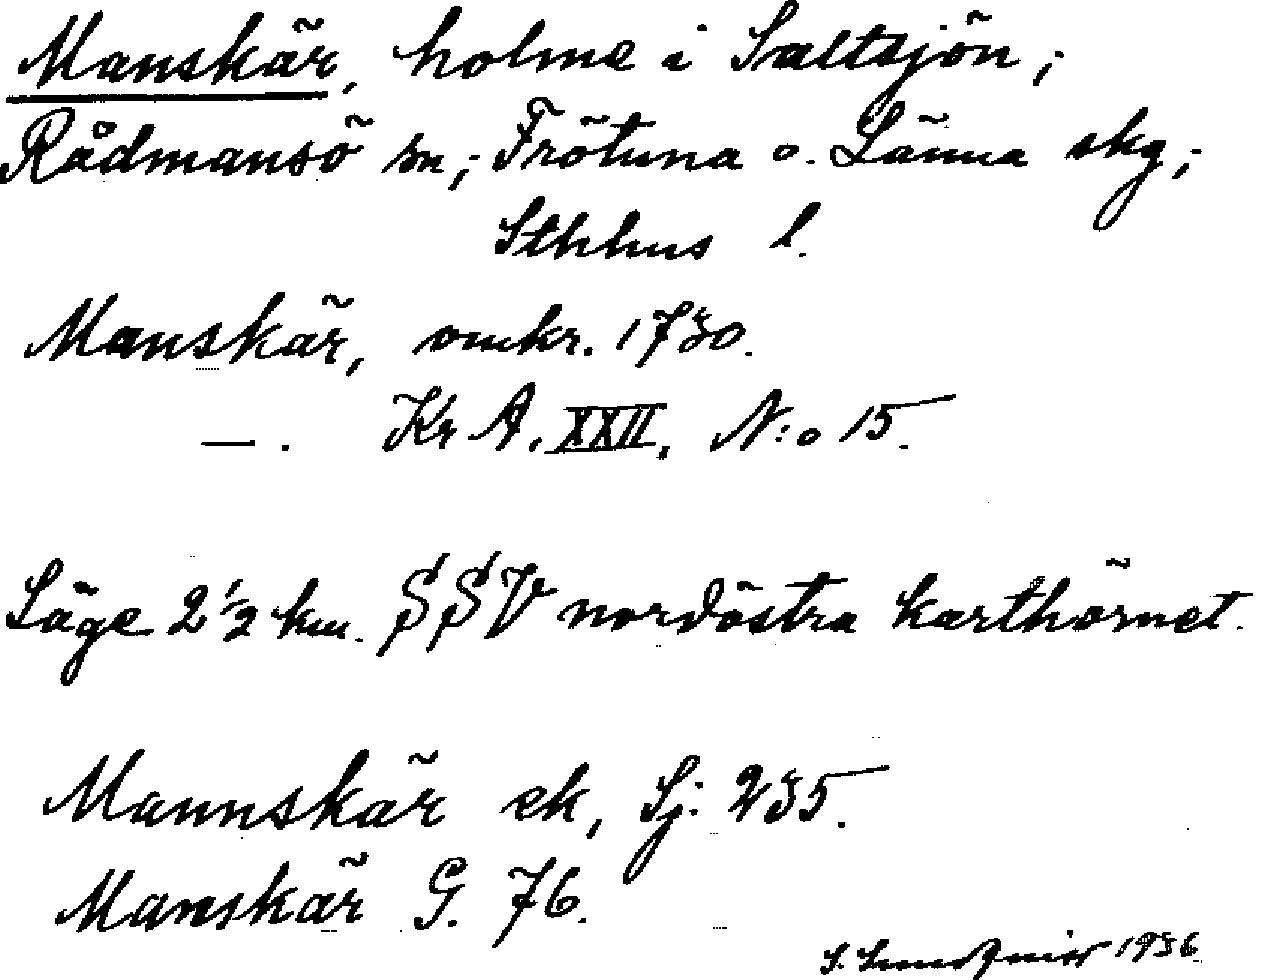 Manskär, holme i Saltsjön;
Rådmansö sn; Frötuna o. Länna skg;
Sthlms l.
Manskär, omkr. 1730.
— . Kr A. XXII, N:o 15.
Läge 2 1/2 km. SSV nordöstra karthörnet.
Mannskär ek, Sj: 235.
Manskär G. 76.
S. 1936